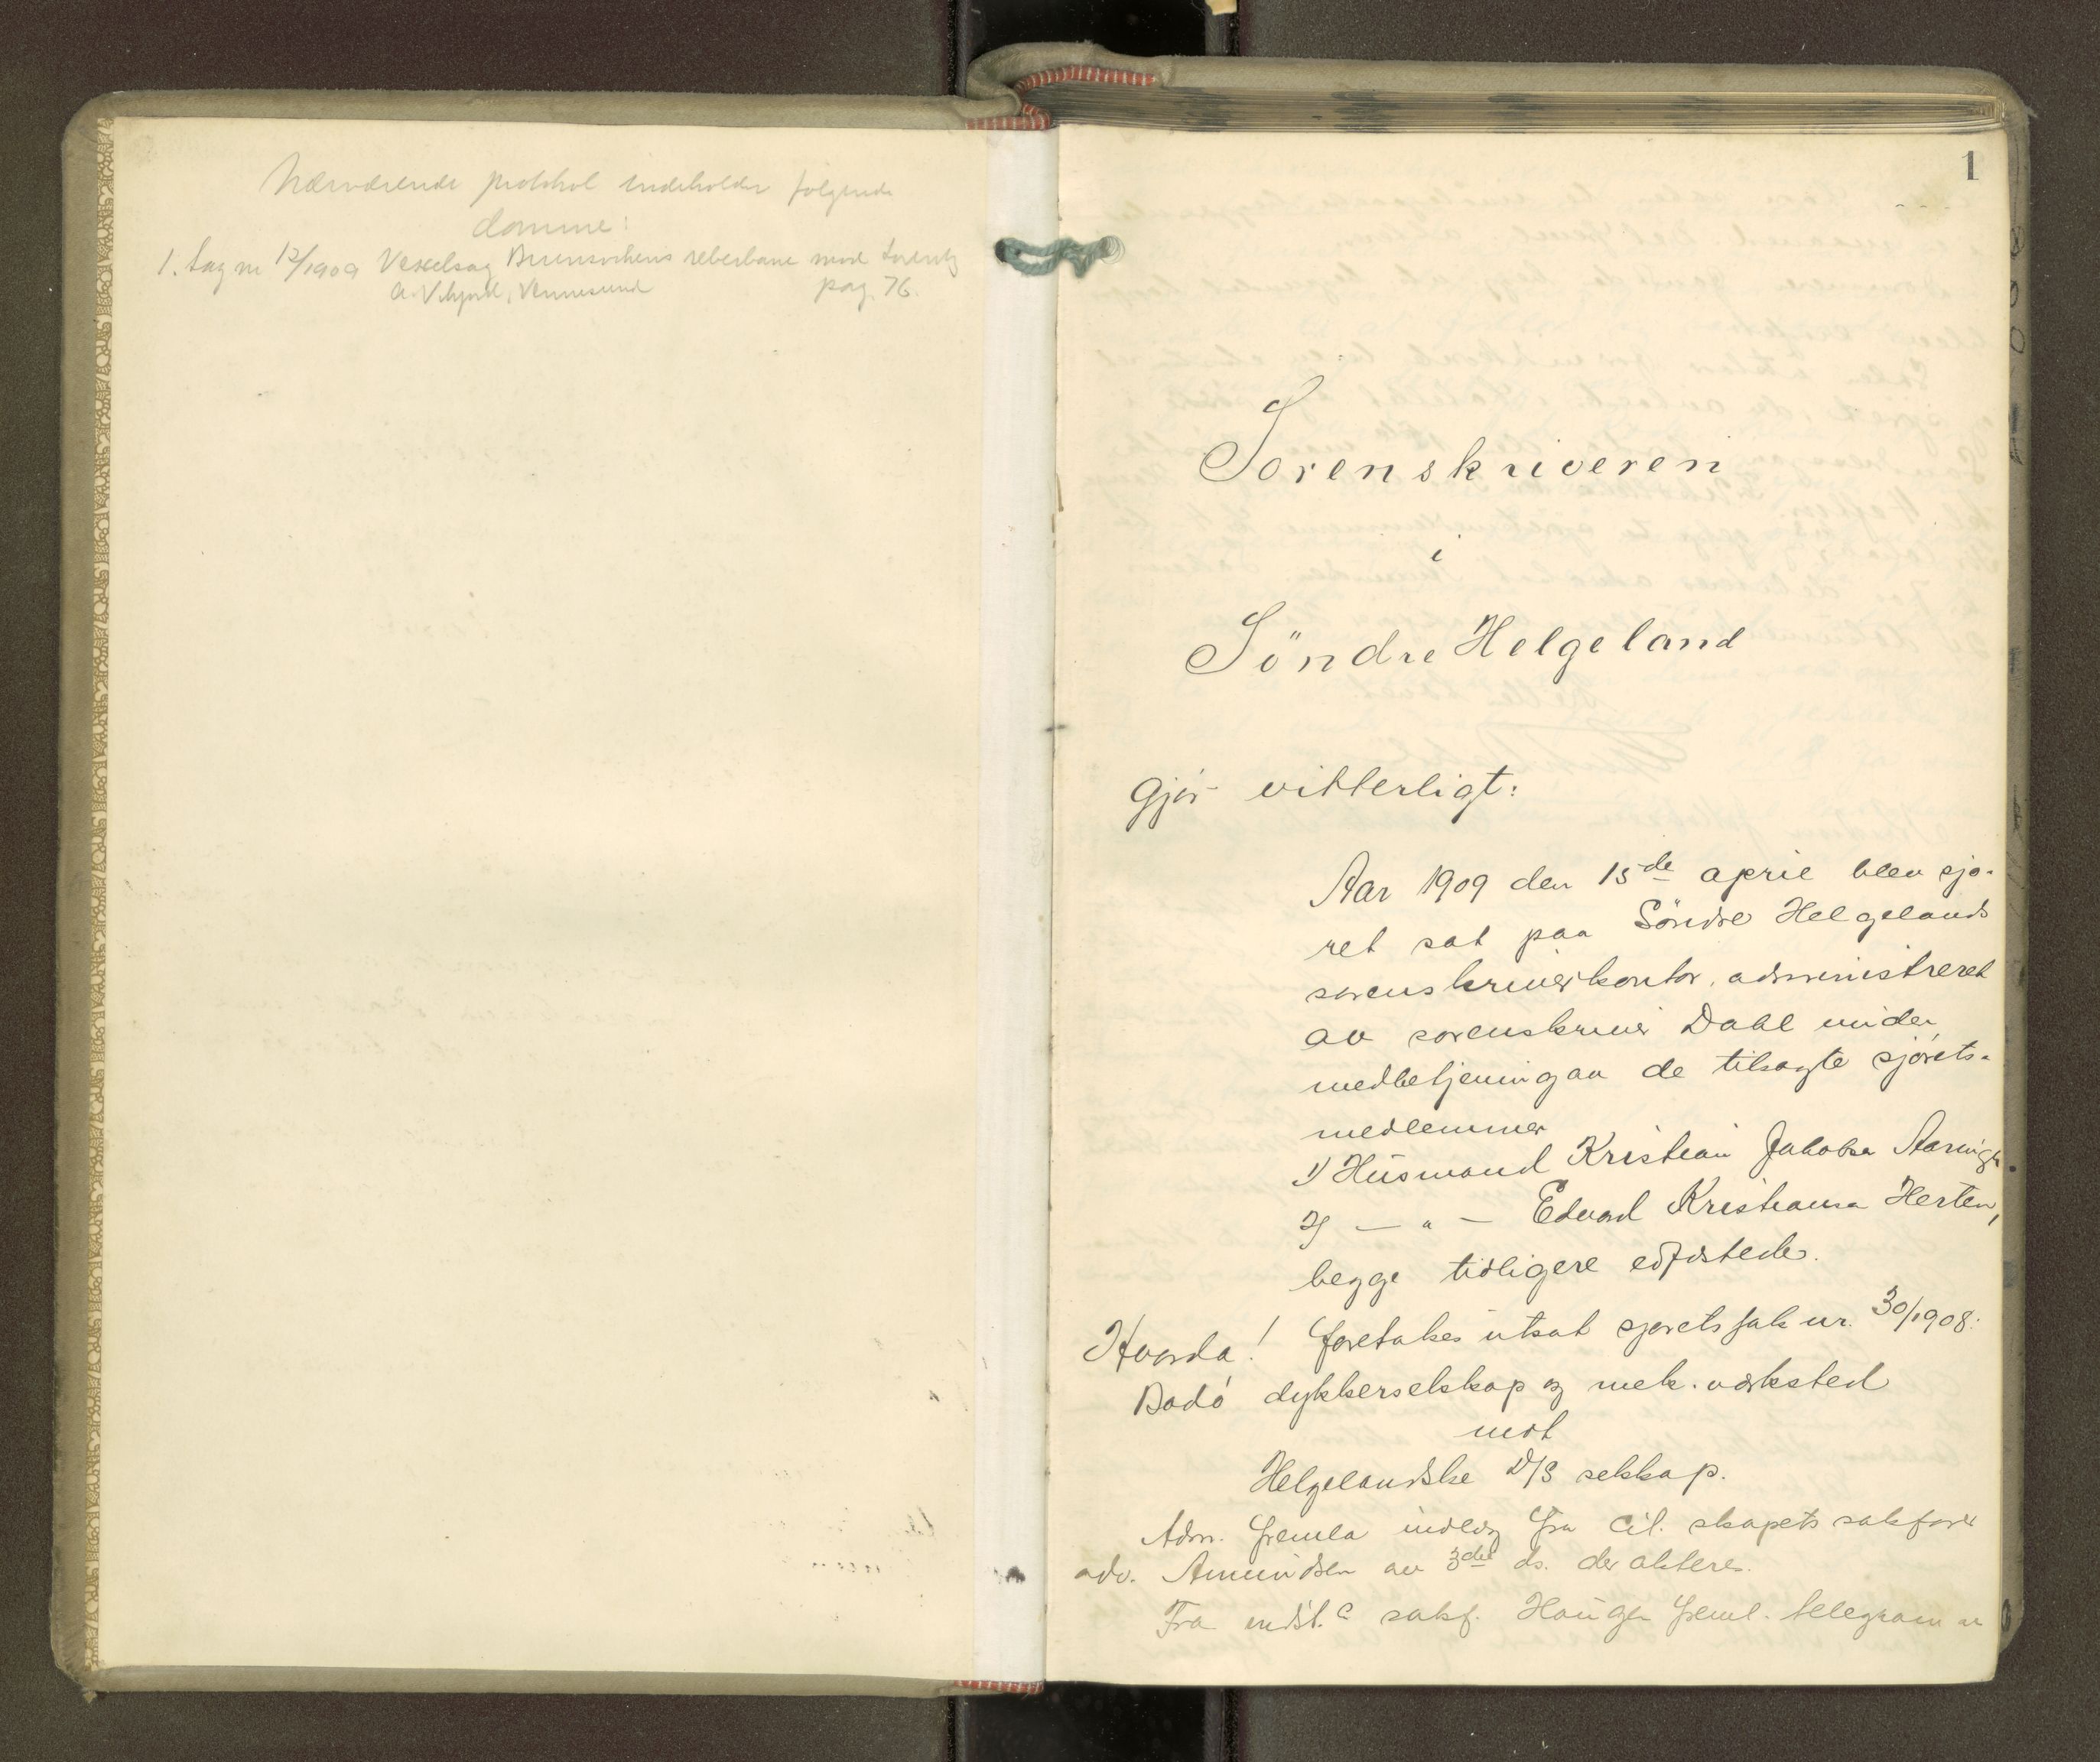 Nærværende protokol indeholder følgende
domme:
1. Sag nr 12/1909 Vexelsag reberbane mod
Vennesund pag. 76.
1
Sorenskriveren
i
Söndre Helgeland
Gjør vitterligt:
Aar 1909 den 15de april blev sjø-
ret sat paa Söndre Helgelands
sorenskriverkontor, administreret
av sorenskriver Dahl under
medbetjening av de tilsagte sjørets-
medlemmer
1) Husmand Kristian Jakobsen
2) — " — Edvard Kristiansen Horten,
begge tidligere edfæstede.
Hvorda! Foretakes utsat sjøretssak nr. 30/1908:
Bodø dykkerselskap og mek. værksted
mot
Helgelandske D/S selskap.
Adm. freml. indlæg fra cit. skapets sakfører
adv. Amundsen av 3die ds. der akteres.
Fra indst. sakf. Haugen freml. telegram av